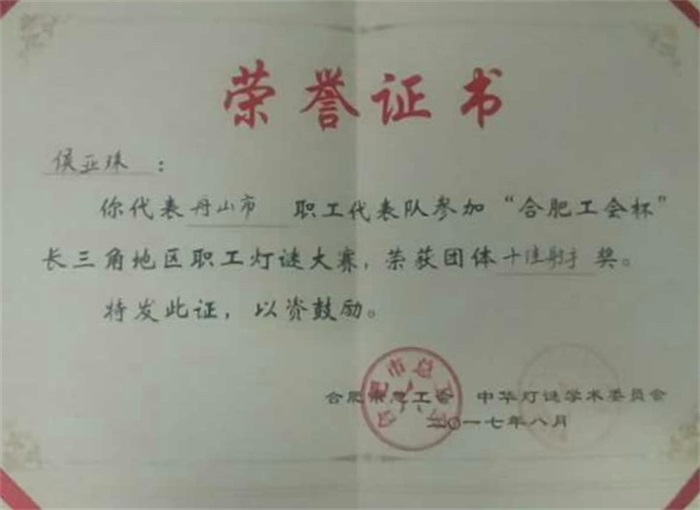 荣誉证书
侯亚珠：
你代表舟山市 职工代表队参加“合肥工会杯”
长三角地区职工灯谜大赛，荣获团体十佳射手奖。
特发此证，以资鼓励。
合肥市总工会 中华灯谜学术委员会
二〇一七年八月
合肥市总工会